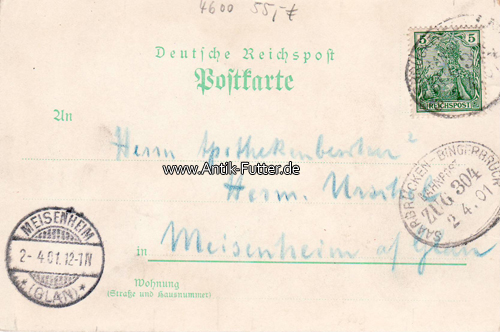 4600 55,-
Deutsche Reichspost
Postkarte
5 5
REICHSPOST
An
Herrn Apothekenbesitzer
www.Antik-Futter.de
Herrn
SAARBRÜCKEN - BINGERBRÜCK
BAHNPOST
ZUG 304
2 4. 01
MEISENHEIM
2- 4 01. 12-1N
* (GLAN) *
in Meisenheim a/Glan
Wohnung
(Straße und Hausnummer)